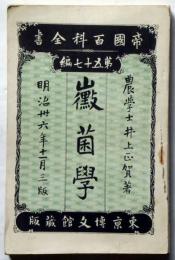 帝國百科全書
第五十七編
農學士井上正賀著
黴菌學
明治卅六年十一月三版
東京博文館藏版